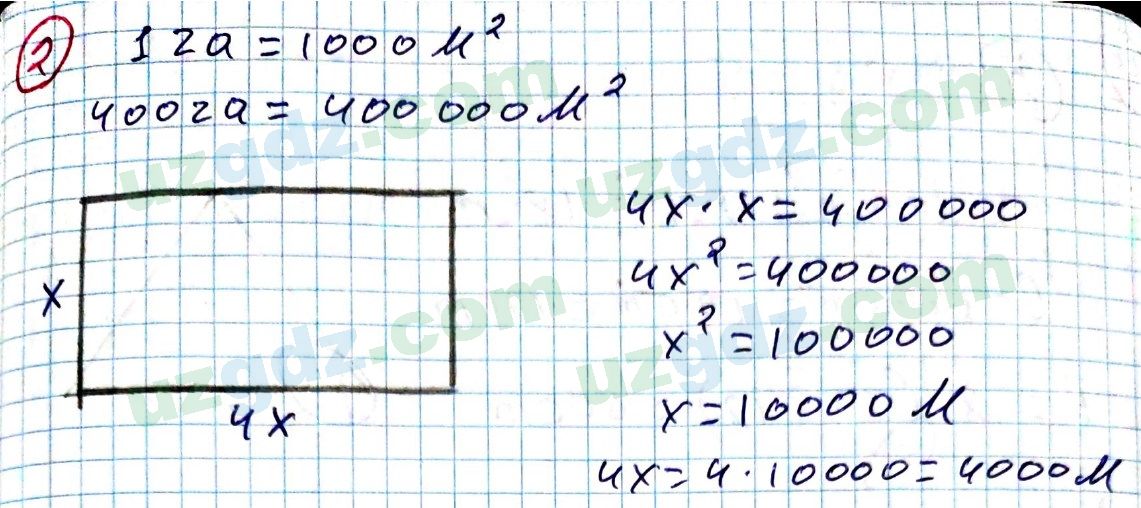 2
1 га = 1000 м²
400 га = 400 000 м²
4x · x = 400 000
4x² = 400000
x² = 100000
x = 10000 м
4x = 4 · 10000 = 4000 м
x
4x
uzgdz.com
uzgdz.com
uzgdz.com
uzgdz.com